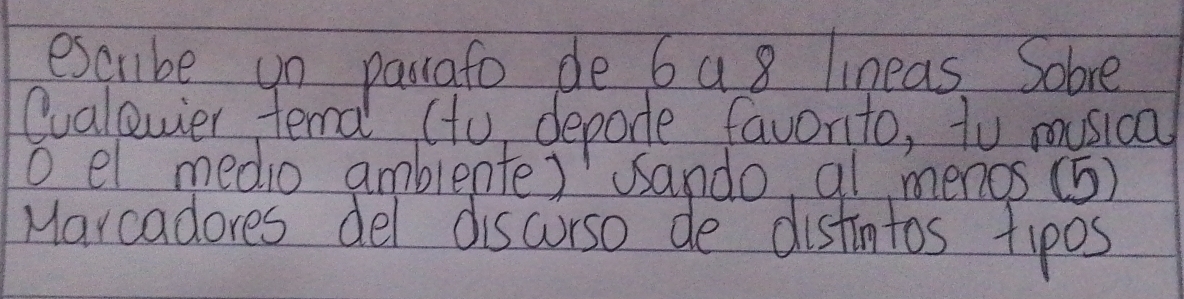 escribe un parrafo de 6 a 8 lineas Sobre
Cualquier tema (tu deporte favorito, tu musica
O el medio ambiente) usando al menos (5)
Marcadores del discurso de distintos tipos